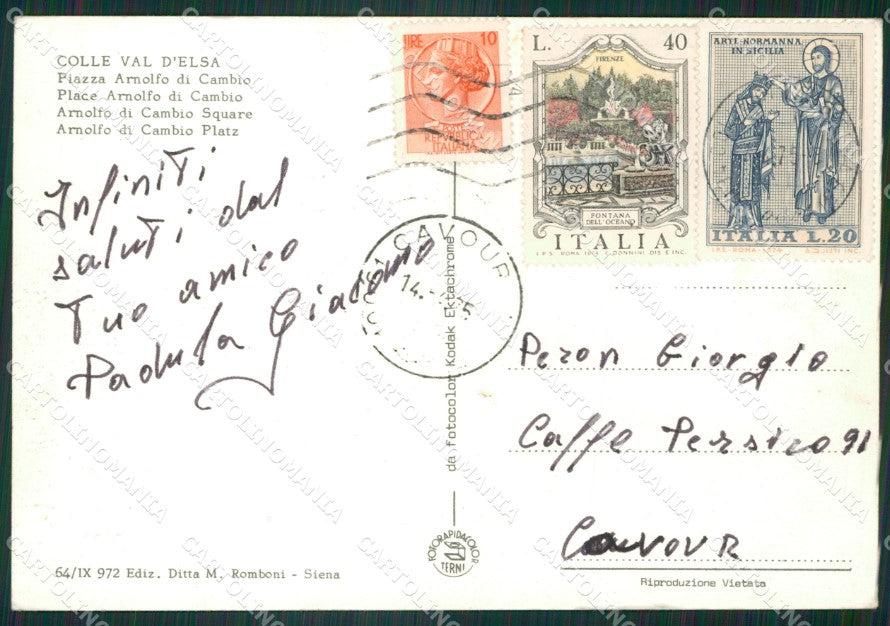 COLLE VAL D'ELSA
Piazza Arnolfo di Cambio
Place Arnolfo di Cambio
Arnolfo di Cambio Square
Arnolfo di Cambio Platz
Infiniti
saluti dal
Tuo amico
Padula Giacomo
LIRE 10
ITALIANA
L. 40
FIRENZE
FONTANA
DELL'OCEANO
ITALIA
I.P.S. ROMA 1974 C. DONNINI DIS E INC.
ARTE NORMANNA
IN SICILIA
ITALIA L.20
CAVOUR
14.
da fotocolor Kodak Ektachrome
Peron Giorgio
Caffe Persico 91
CAVOUR
FOTORAPIDACOLOR
TERNI
64/IX 972 Ediz. Ditta M. Romboni - Siena
Riproduzione Vietata
CARTOLINOMANIA